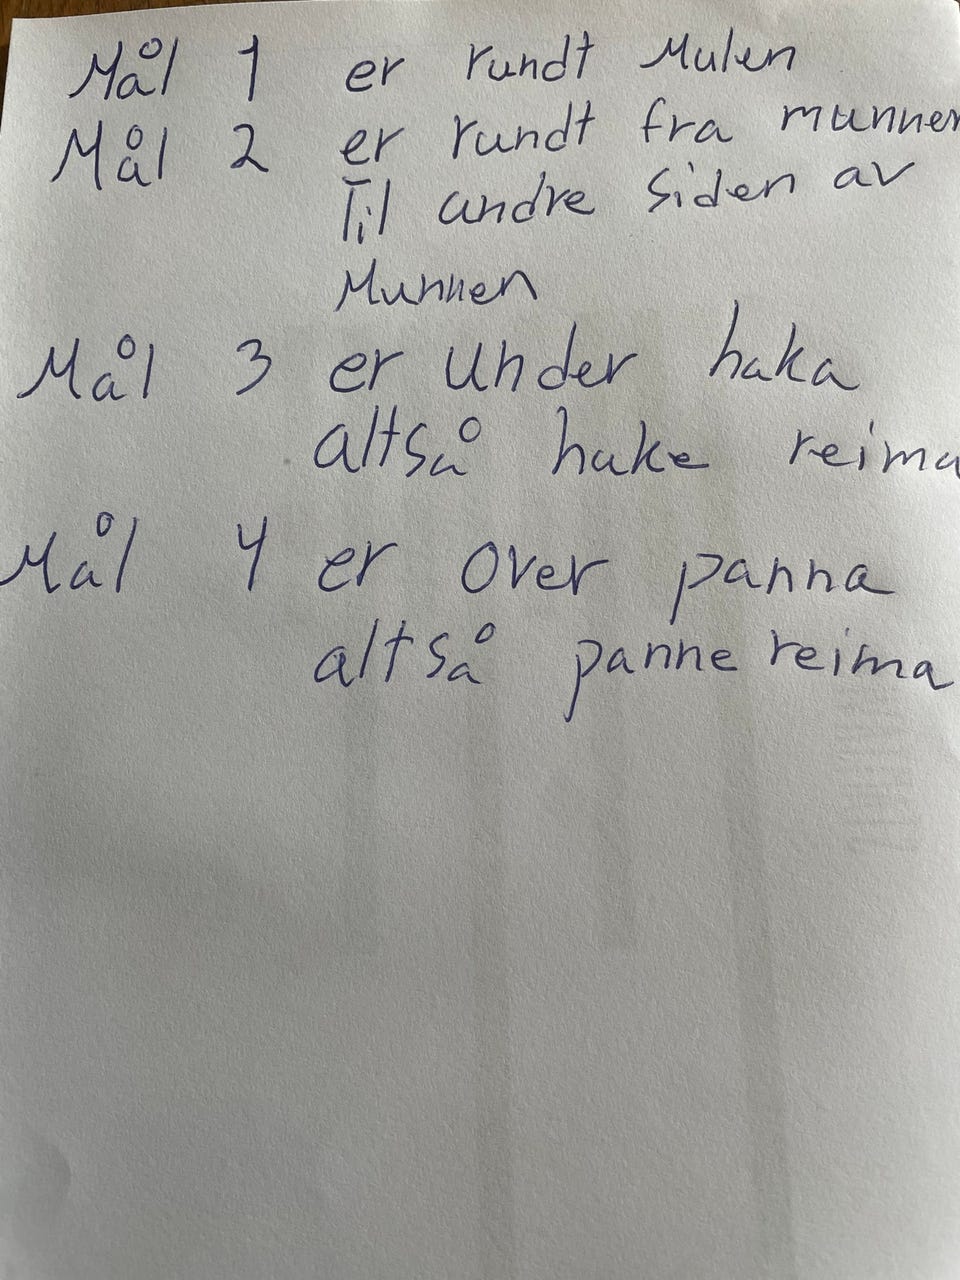 Mål 1 er rundt Mulen
Mål 2 er rundt fra munnen
Til andre siden av
Munnen
Mål 3 er under haka
altså hake reima
Mål 4 er over panna
altså panne reima